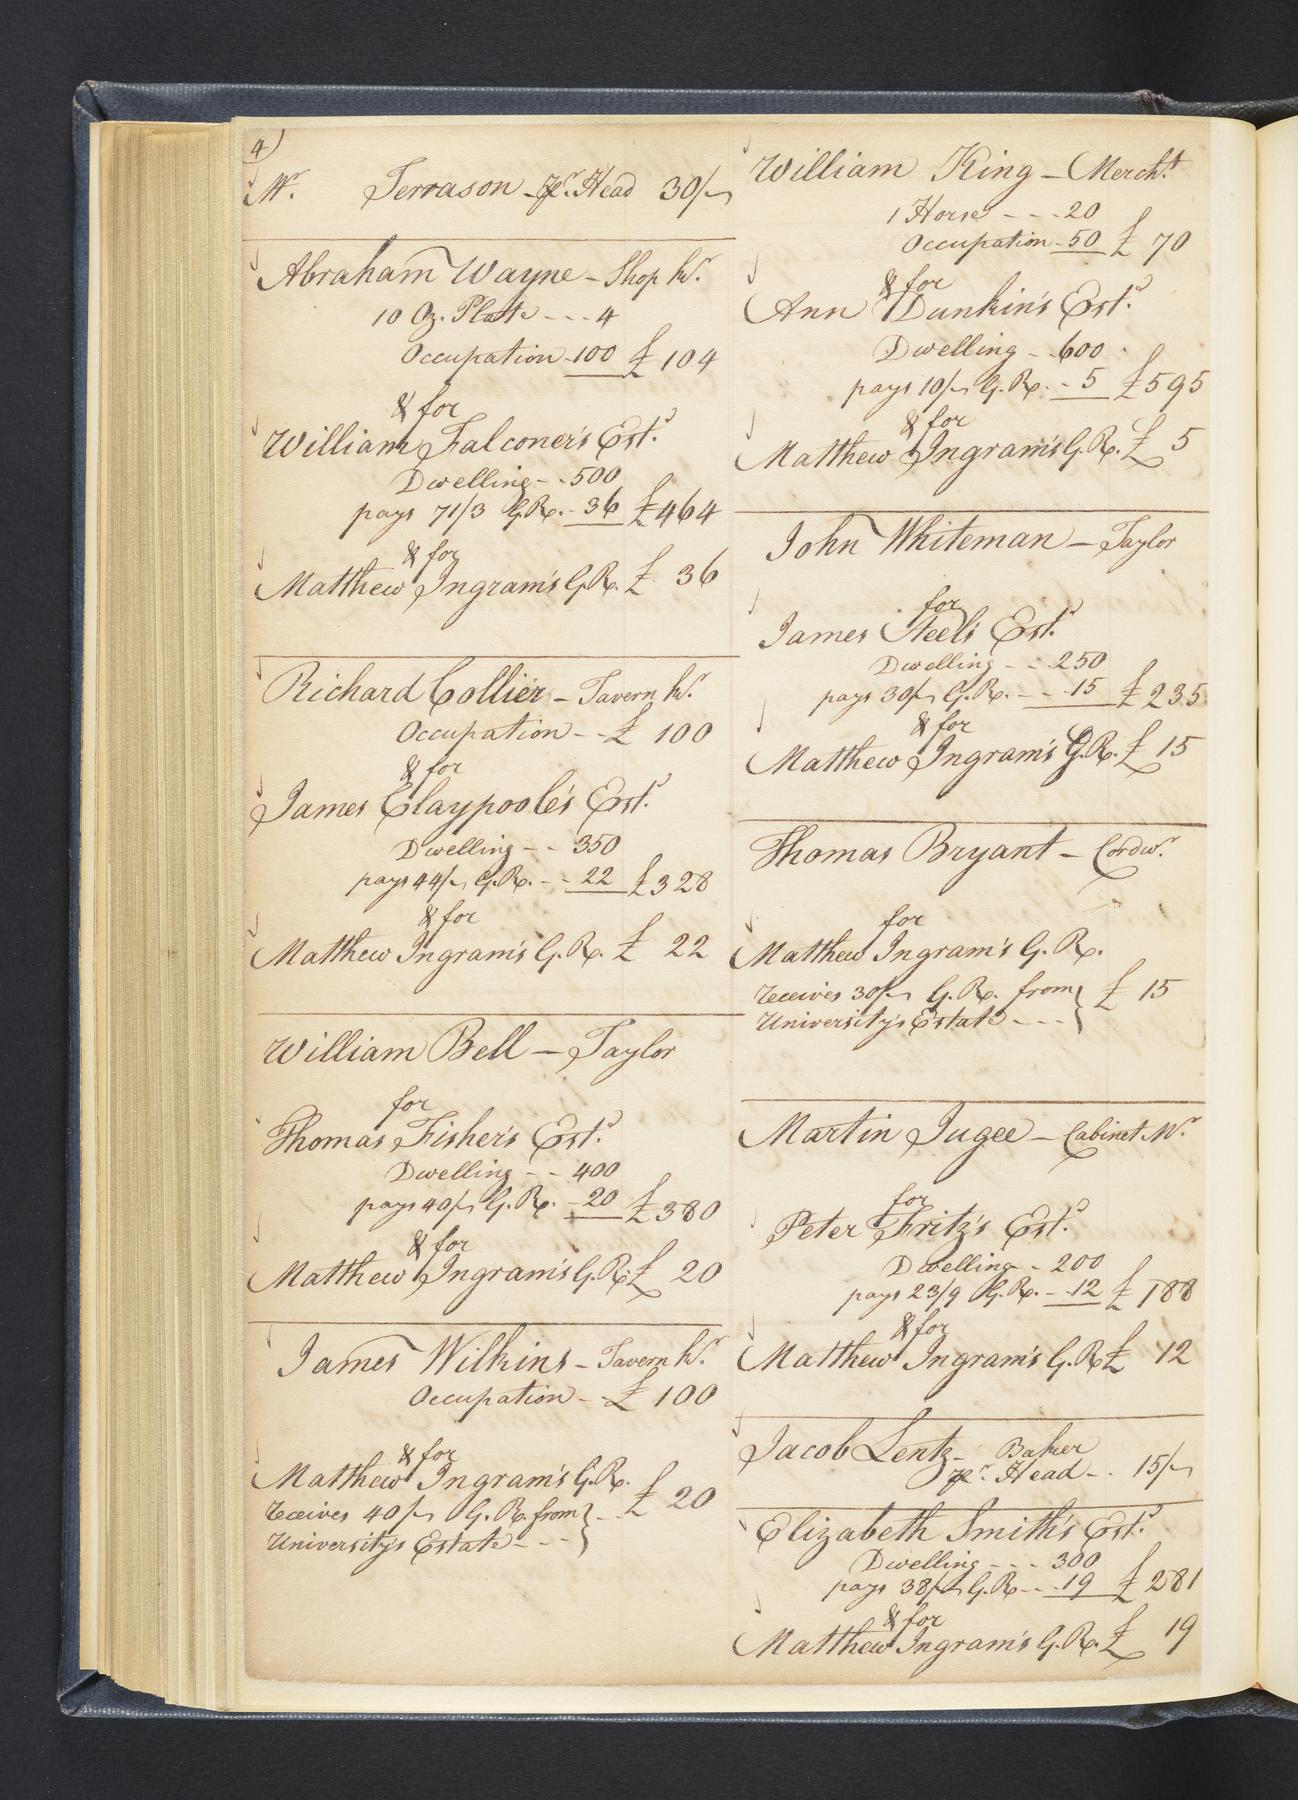 4)
Mr. Terrason - pr. Head 30/-
Abraham Wayne - Shop kr.
10 Oz. Plate - - - 4
Occupation - 100 £ 104
& for
William Falconer's Estd.
Dwelling - - 500
pays 71/3 G.R. - 36 £ 464
& for
Matthew Ingram's G.R. £ 36
Richard Collier - Tavern kr.
Occupation - - £ 100
& for
James Claypoole's Est.
Dwelling - - 350
pays 44/- G.R. - - 22 £ 328
& for
Matthew Ingram's G.R. £ 22
William Bell - Taylor
for
Thomas Fisher's Estd.
Dwelling - - 400
pays 40/- G.R. - 20 £ 380
& for
Matthew Ingram's G.R. £ 20
James Wilkins - Tavern kr.
Occupation - - £ 100
& for
Matthew Ingram's G.R.
receives 40/- G.R. from } - £ 20
University's Estate - - -
William King - Mercht.
1 Horse - - - 20
Occupation - 50 £ 70
& for
Ann Dunkin's Estd.
Dwelling - - 600
pays 10/- G.R. - 5 £ 595
& for
Matthew Ingram's G.R. £ 5
John Whiteman - Taylor
for
James Steel's Estd.
Dwelling - - 250
pays 30/- G.R. - - 15 £ 235
& for
Matthew Ingram's G.R. £ 15
Thomas Bryant - Cordwr.
for
Matthew Ingram's G.R.
receives 30/- G.R. from } £ 15
University's Estate - - -
Martin Jugee - Cabinet Mr.
for
Peter Fritz's Estd.
Dwelling - 200
pays 23/9 G.R. - 12 £ 188
& for
Matthew Ingram's G.R £ 12
Jacob Lentz - Baker
pr. Head - . 15/-
Elizabeth Smith's Estd.
Dwelling - - - 300
pays 38/- G.R. - - 19 £ 281
& for
Matthew Ingram's G.R. £ 19